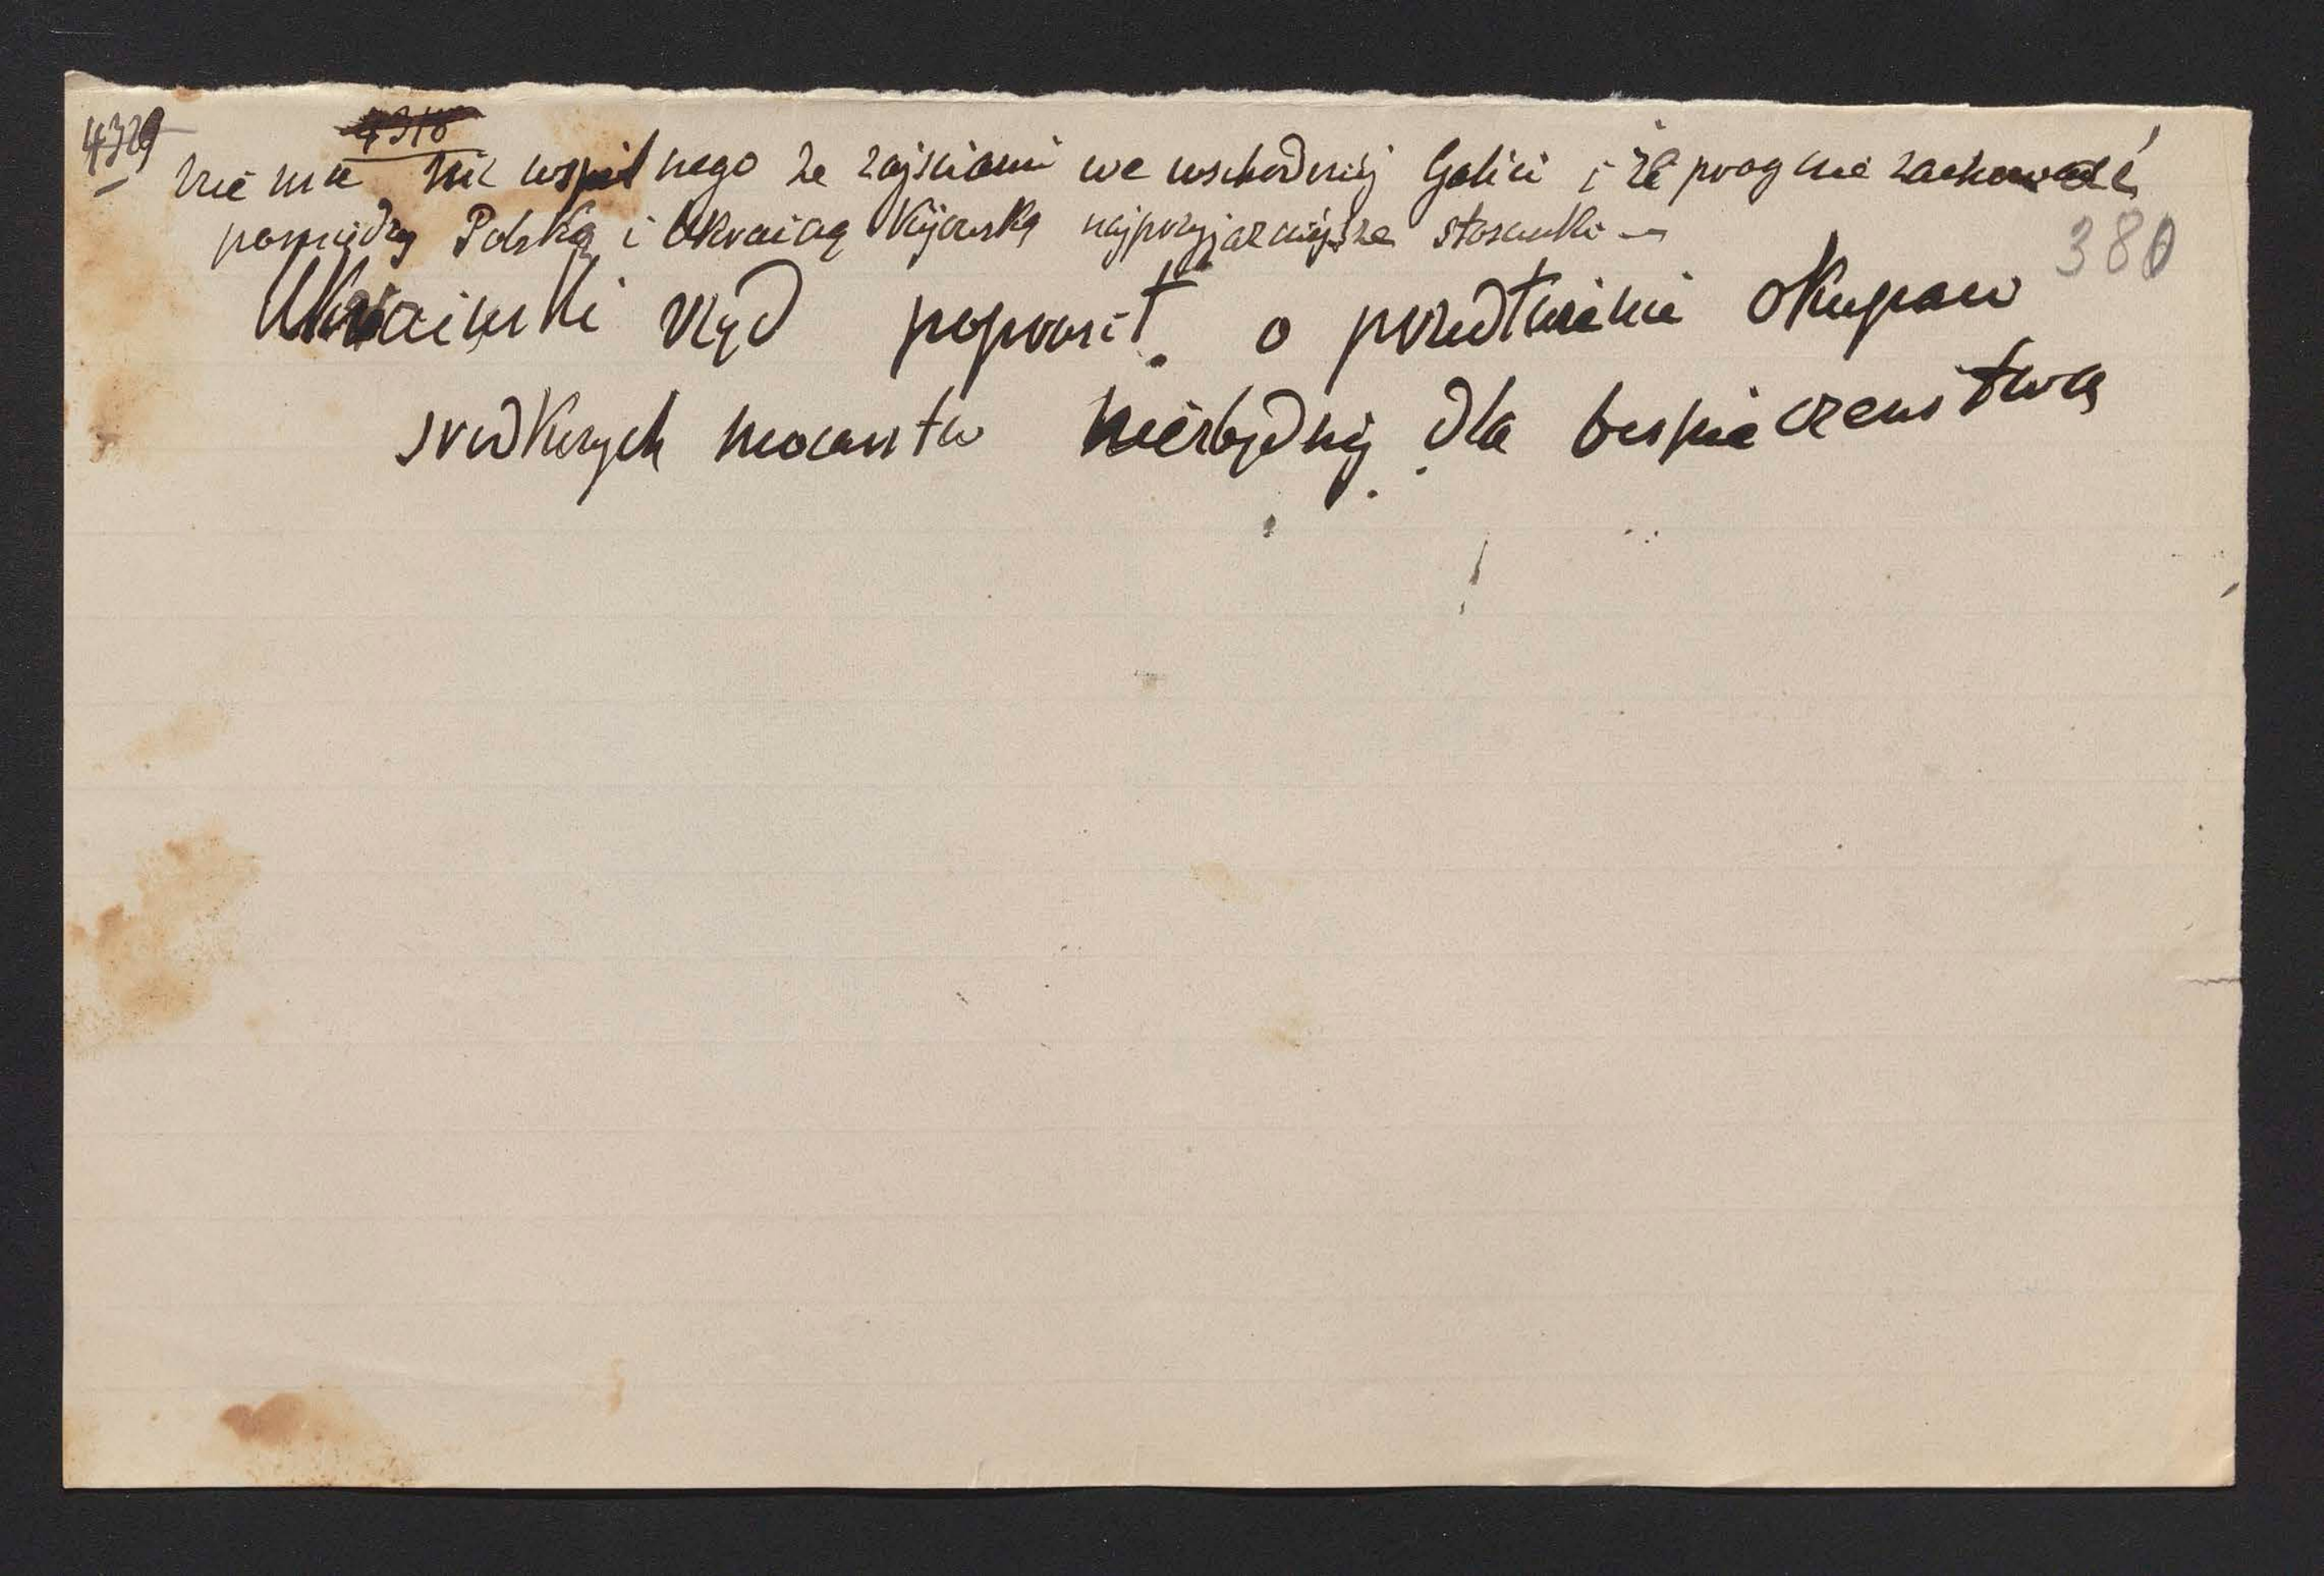 4329 4318
nie ma nic wspólnego ze zajściami we wschodniej Galici i że pragnie zachować
380
pomiędzy Polską i Ukrainą Kijowską najprzyjaźniejsze stosunki —
Ukraiński rząd poprosił o przedłużenie okupacu
środkowych mocarstw niezbędnej dla bespieczenstwa